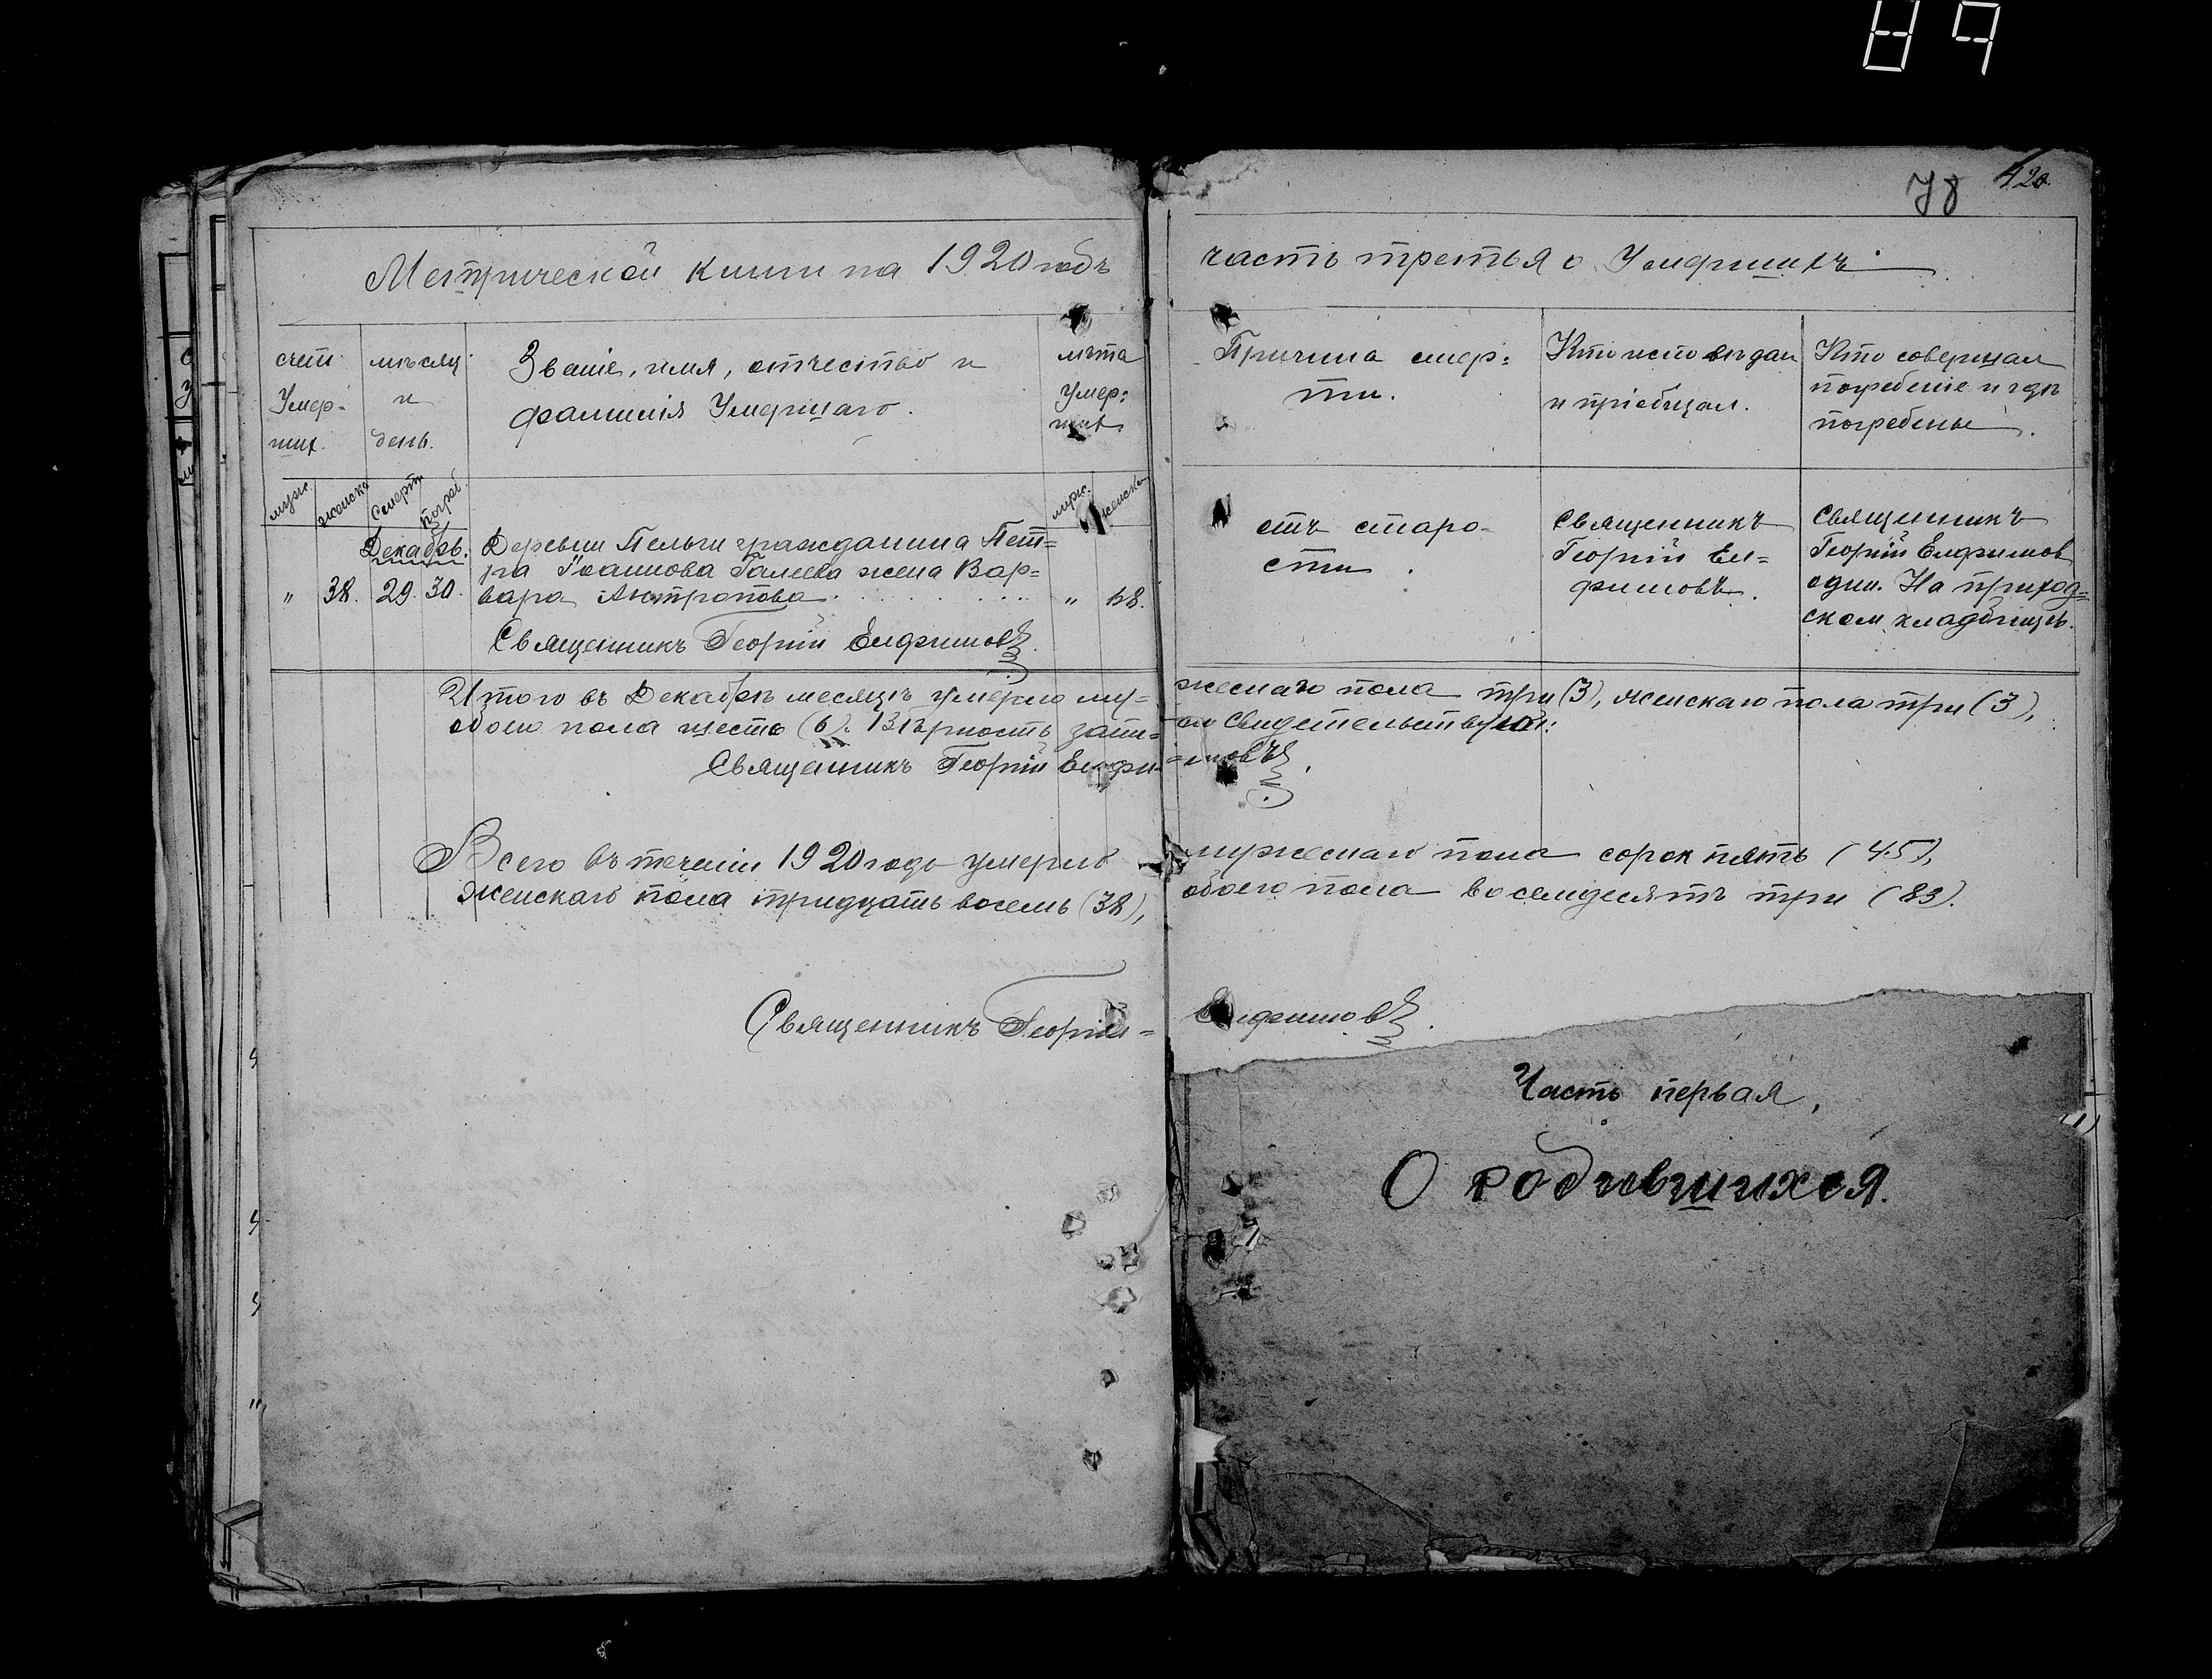 89
78 420.
Метрической книги на 1920 годъ
часть третья о Умершихъ
счет Умер- ших.
мѣсяц и день.
Званіе, имя, отчество и
фамилія Умершаго.
лѣта Умер- ших
Причина смер-
ти.
Кто исповѣдал
и пріобщал.
Кто совершал
погребеніе и гдѣ
погребены.
муж. женска Смерт. погреб.
муж. женска
Декабрь.
Деревни Пельги гражданина Пет=
ра Іоаннова Галеева жена Вар=
" 38. 29. 30. вара Антропова " 68.
Священникъ Георгій Елфимовъ.
отъ старо-
сти.
Священникъ
Георгій Ел=
фимовъ.
Священникъ
Георгій Елфимов
один. На приход=
ском кладбищѣ.
Итого въ Декабрѣ месяцѣ умерло му=
жескаго пола три (3), женскаго пола три (3),
обоего пола шесть (6). Вѣрность запи=
си свидетельствую:
Священникъ Георгій Елфи=
=мовъ.
Всего въ теченіи 1920 года умерло
мужескаго пола сорок пять (45),
женскаго пола тридцать восемь (38),
обоего пола восемдесятъ три (83).
Священникъ Георгій=
Елфимовъ.
Часть первая,
О родившихся.